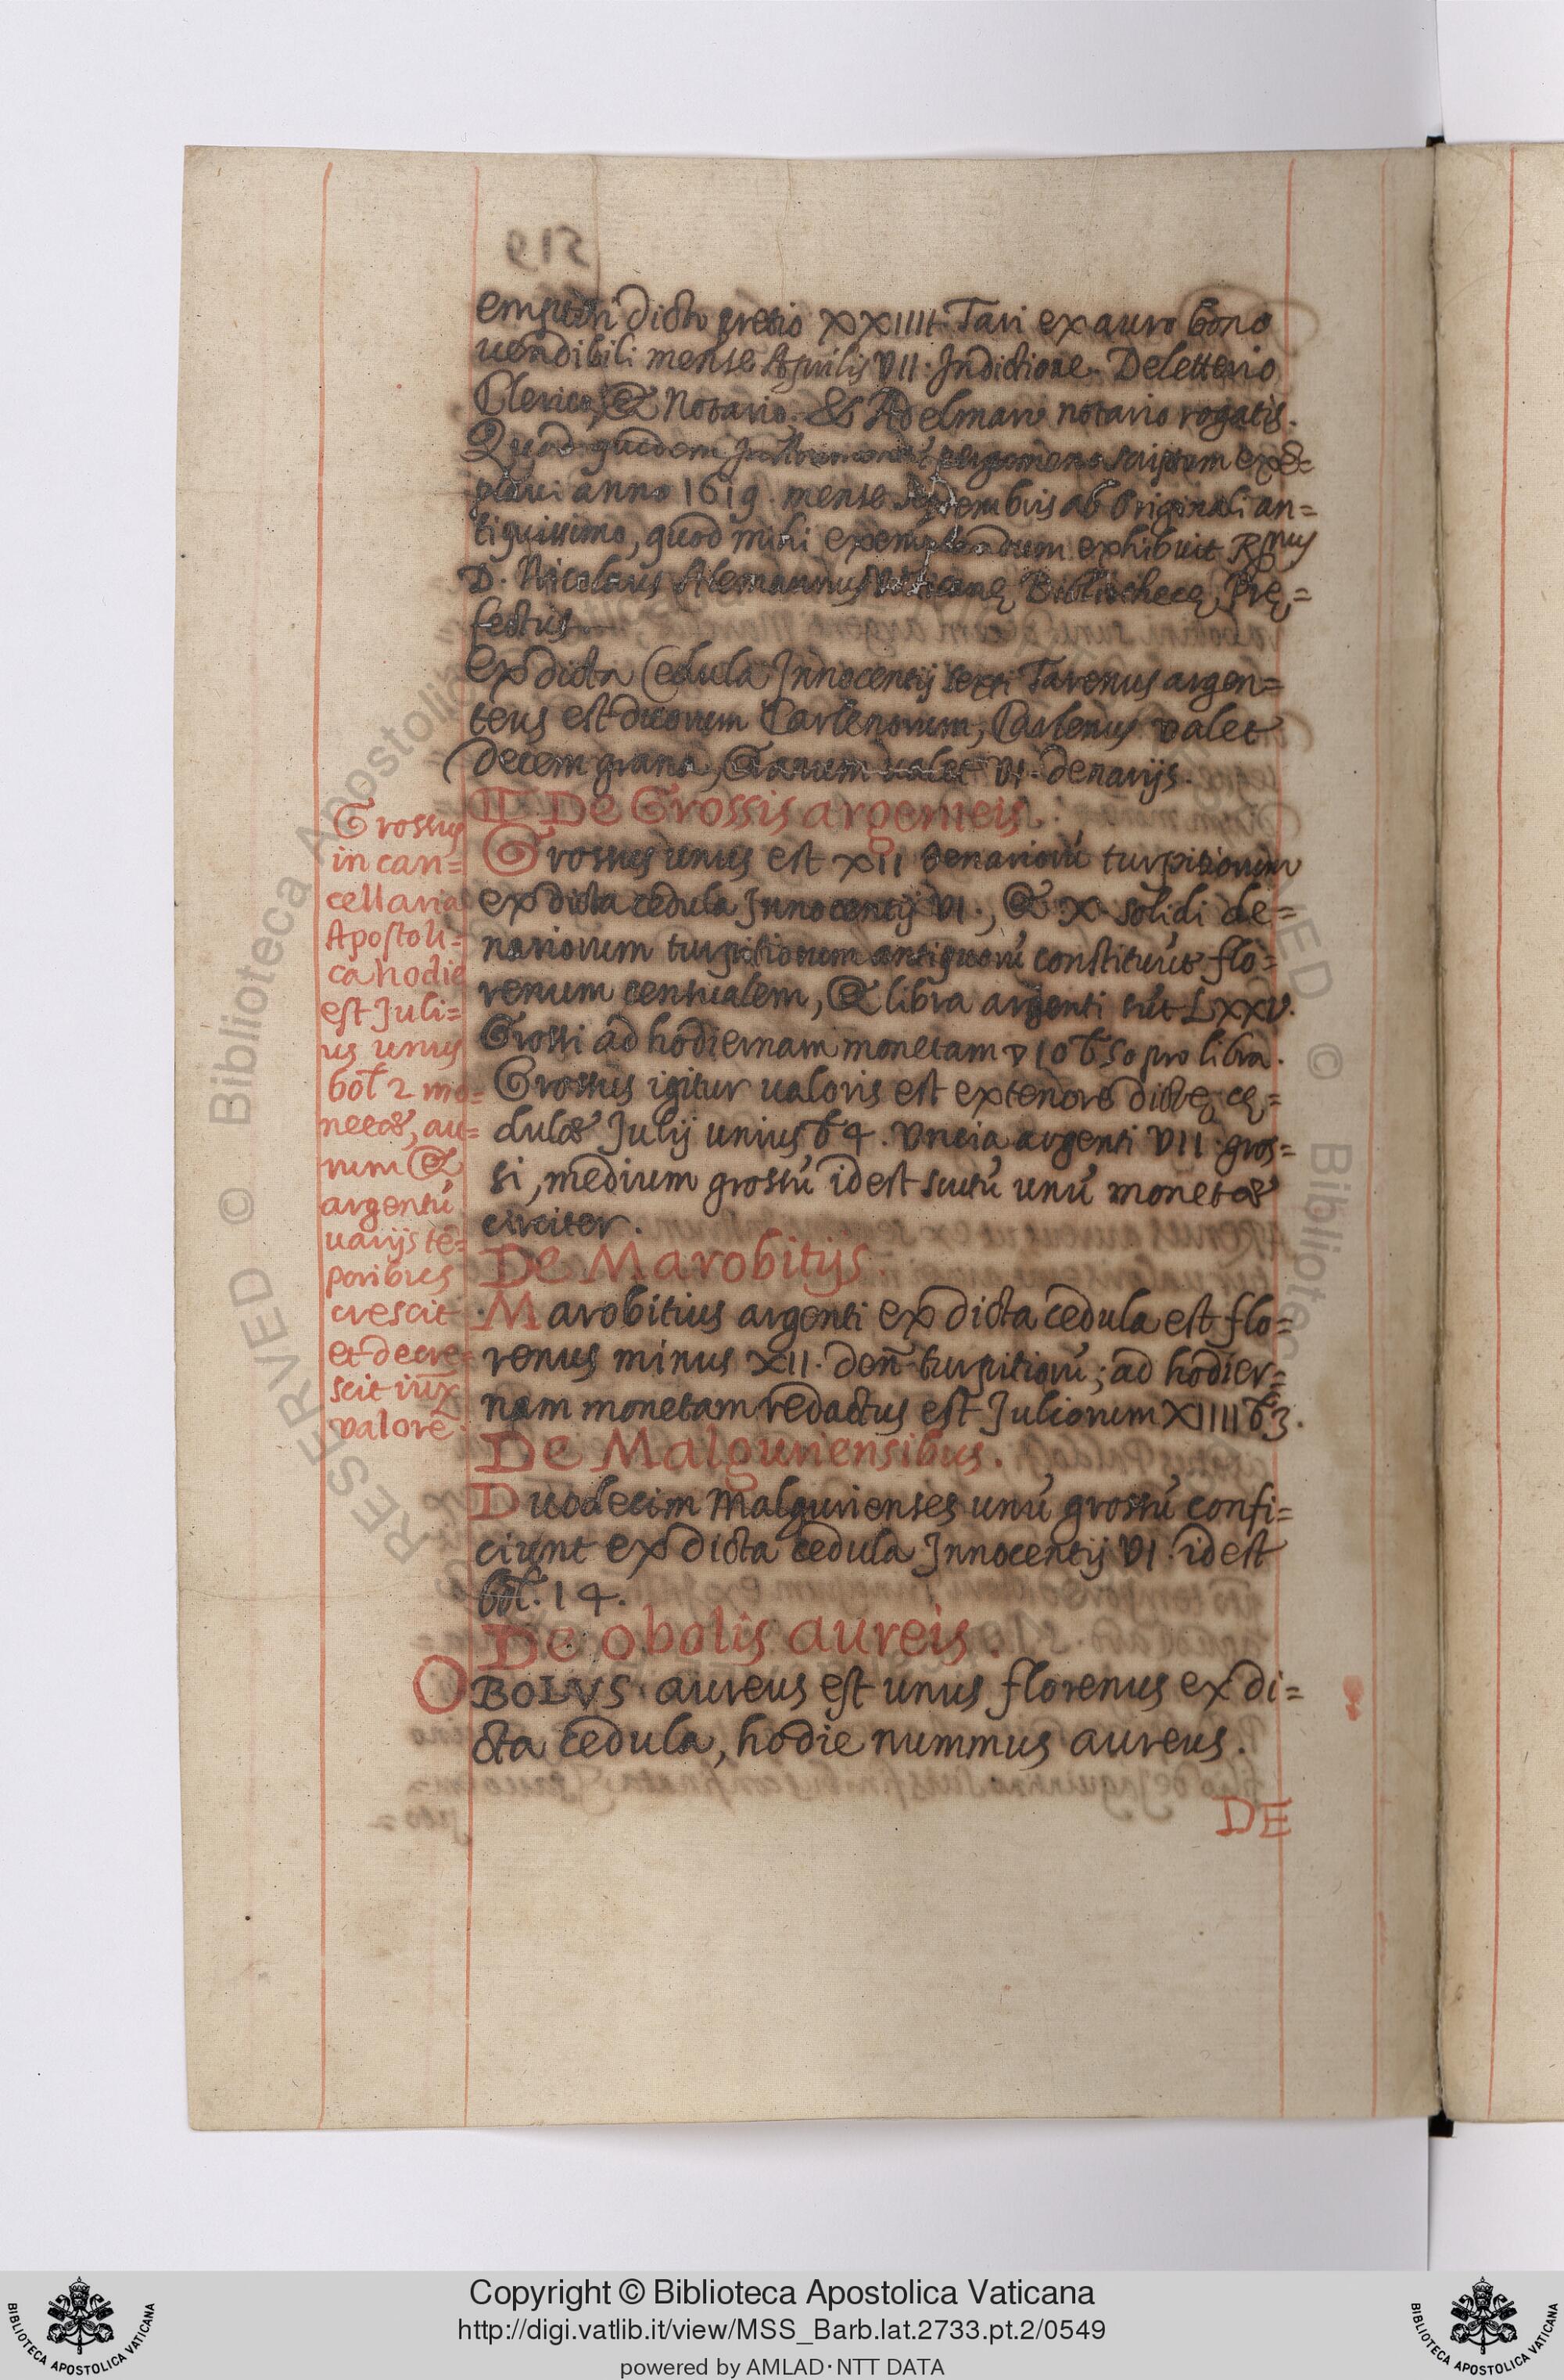 empti dicto pretio XXIIII. Tari ex auro bono
uendibili mense Aprilis VII. Indictione. Deletterio
Clerico, & Notario. & Adelmaro notario rogatis.
Quod quidem pergameno scriptum exe=
plaui anno 1619. mense Septembris ab Originali an=
tiquissimo, quod mihi exemplandum exhibuit R.mus
D. Nicolaus Alemannus Vaticanę Bibliothecę Prę=
fectus
Ex dicta Cedula Innocentij sexti Tarenus argen=
teus est duorum Carlenorum, Carlenus valet
decem grana, Granum ualet VI. denarijs.
De Grossis argenteis.
Grossus unus est XII denariorū turpitiorum
ex dicta cedula Innocentij VI., & X. solidi de=
nariorum turpitiorum antiquorū constituūt flo=
renum sentualem, & libra argenti sūt LXXV.
Grossi ad hodiernam monetam ▽ 10 b. 50 pro libra.
Grossus igitur ualoris est ex tenore dictę cę=
dulae Julij unius b 4. Vncia argenti VII. gros=
si, medium grossū idest scutū unū monetae
circiter.
De Marobitijs.
Marobitius argenti ex dicta cedula est flo=
renus minus XII. den̄ turpitiorū; ad hodier=
nam monetam redactus est Juliorum XIIII b 3.
De Malguriensibus.
Duodecim Malgurienses unū grossū confi=
ciunt ex dicta cedula Innocentij VI. idest
bol. 14.
De obolis aureis.
OBOLVS aureus est unus florenus ex di=
cta cedula, hodie nummus aureus.
DE
Grossus
in can=
cellaria
Apostoli=
ca hodie
est Juli=
us unus
bol 2 mo=
netae, au=
rum &
argentū
uarijs tē=
poribus
crescit
et decre=
scit iux̄
valorē
519
RESERVED © Biblioteca Apostolica
RESERVED © Biblioteca
Copyright © Biblioteca Apostolica Vaticana
http://digi.vatlib.it/view/MSS_Barb.lat.2733.pt.2/0549
powered by AMLAD·NTT DATA
BIBLIOTECA APOSTOLICA VATICANA
BIBLIOTECA APOSTOLICA VATICANA